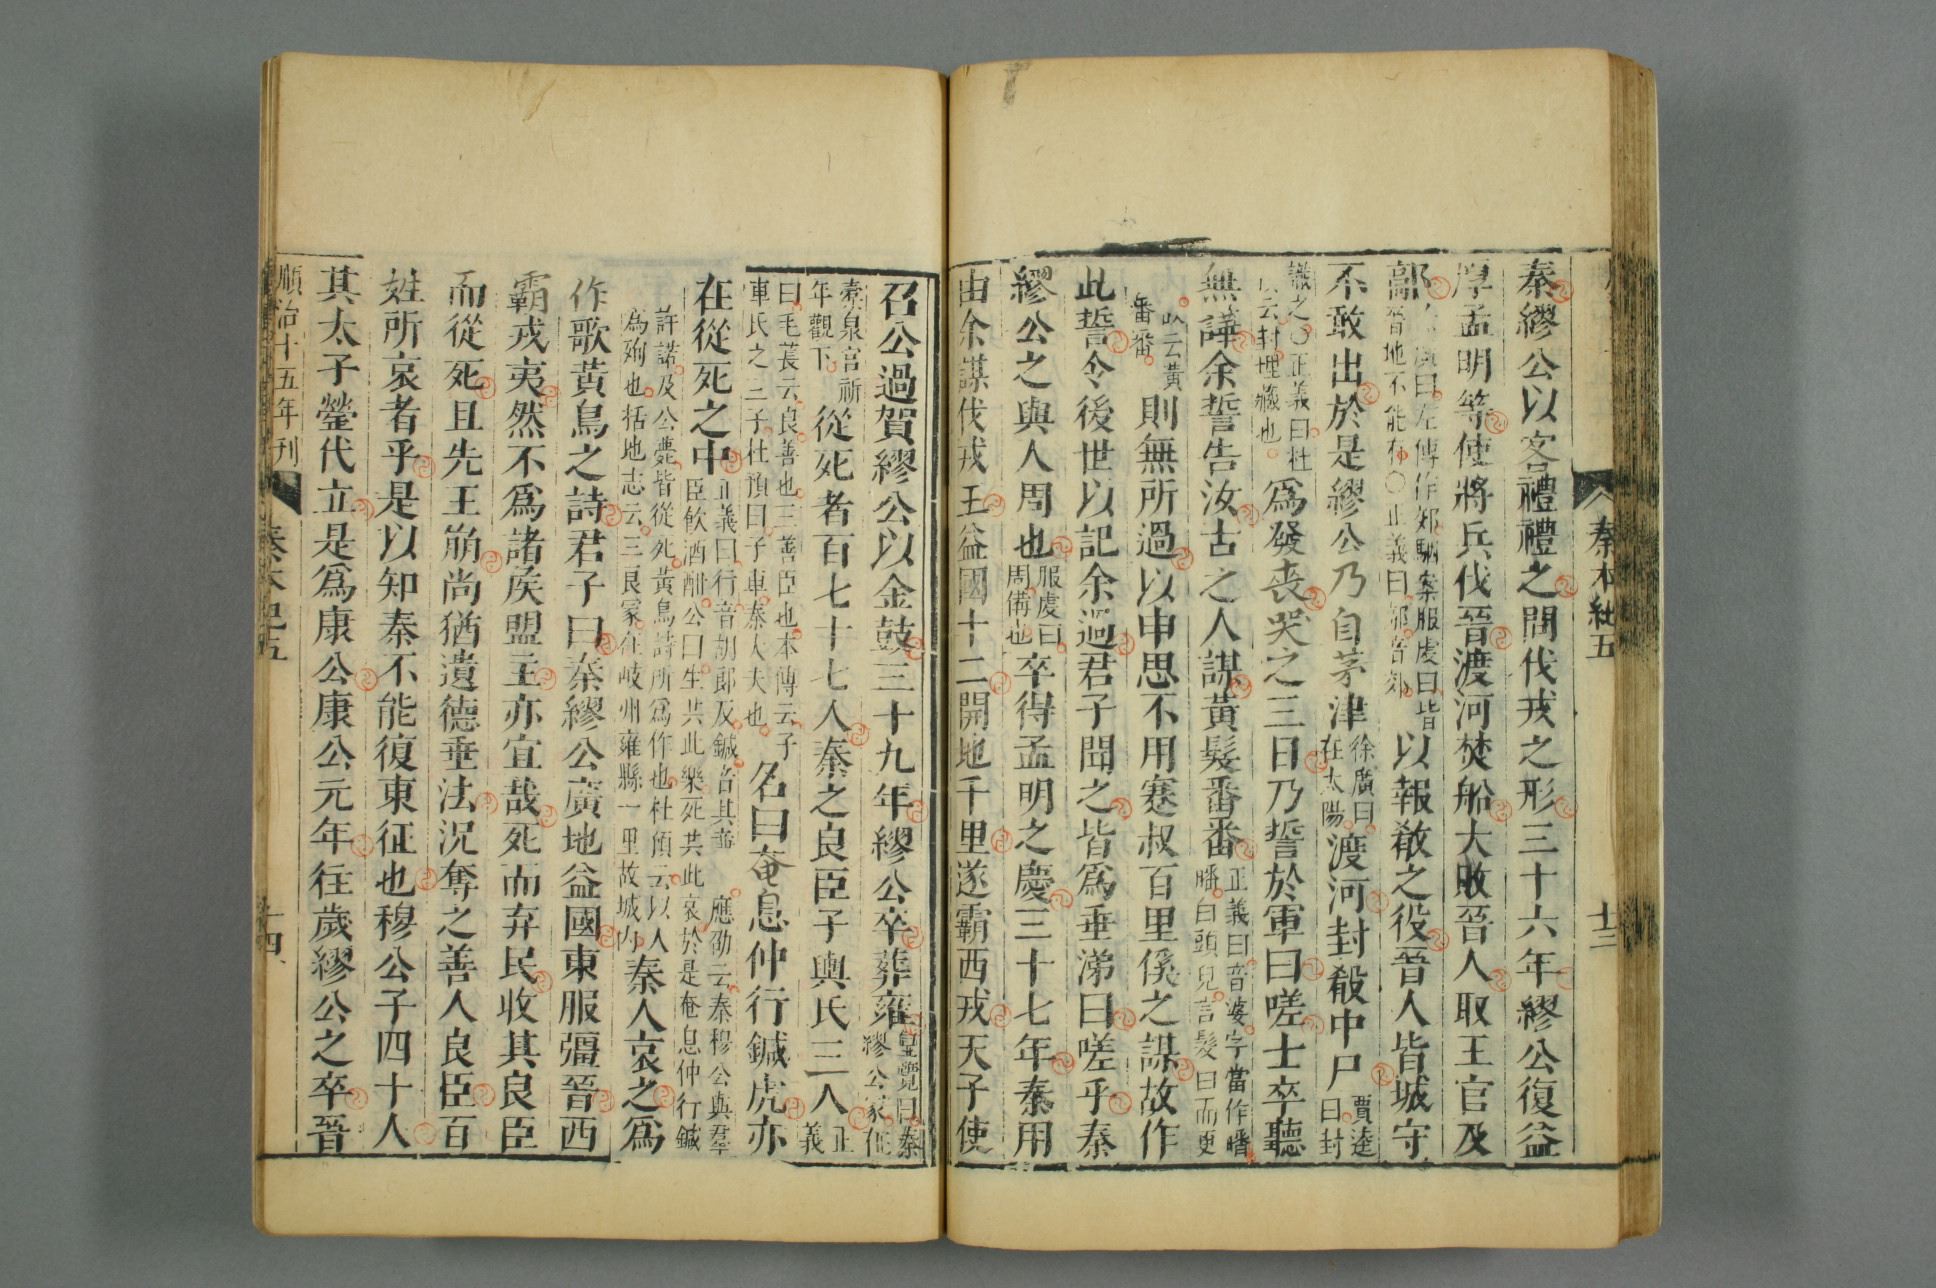 秦本紀五
十三
秦繆公以客禮禮之問伐戎之形三十六年繆公復益
厚孟明等使將兵伐晉渡河焚船大敗晉人取王官及
鄗
曰左傳作郊駰案服虔曰皆
晉地不能有○正義曰鄗音郊
以報殽之役晉人皆城守
不敢出於是繆公乃自茅津
徐廣曰
在大陽
渡河封殽中尸
賈逵
曰封
識之○正義曰杜
云封埋藏也
爲發喪哭之三日乃誓於軍曰嗟士卒聽
無譁余誓告汝古之人謀黃髮番番
正義曰音婆字當作皤
皤白頭皃言髮白而更
黃
番番
則無所過以申思不用蹇叔百里傒之謀故作
此誓令後世以記余過君子聞之皆爲垂涕曰嗟乎秦
繆公之與人周也
服虔曰
周備也
卒得孟明之慶三十七年秦用
由余謀伐戎王益國十二開地千里遂霸西戎天子使
召公過賀繆公以金鼓三十九年繆公卒葬雍
皇覽曰秦
繆公冢在
橐泉宮祈
年觀下
從死者百七十七人秦之良臣子輿氏三人
正
義
曰毛萇云良善也三善臣也本傳云子
車氏之三子杜預曰子車秦大夫也
名曰奄息仲行鍼虎亦
在從死之中
正義曰行音胡郎反鍼音其炎
應劭云秦穆公與羣
臣飲酒酣公曰生共此樂死共此哀於是奄息仲行鍼
許諾及公薨皆從死黃鳥詩所爲作也杜預云以人
為殉也括地志云三良冢在岐州雍縣一里故城內
秦人哀之爲
作歌黃鳥之詩君子曰秦繆公廣地益國東服彊晉西
霸戎夷然不爲諸侯盟主亦宜哉死而弃民收其良臣
而從死且先王崩尚猶遺德垂法況奪之善人良臣百
姓所哀者乎是以知秦不能復東征也穆公子四十人
其太子罃代立是爲康公康公元年往歲繆公之卒晉
順治十五年刊
秦本紀五
十四